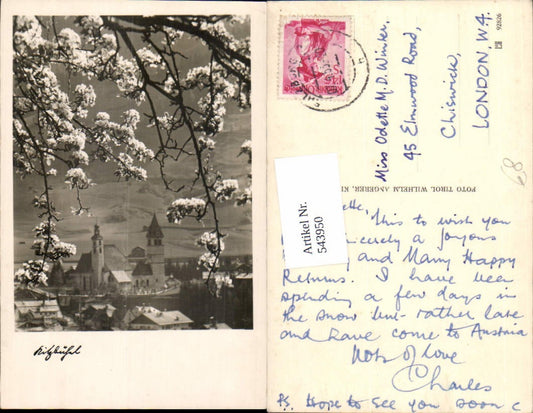 Kitzbühel
92826
Miss Odette M.D. Winter,
45 Elmwood Road,
Chiswick,
LONDON, W.4.
FOTO TIROL, WILHELM ANGERER, KI
68
Artikel Nr.
543950
This to wish you
a joyous
and Many Happy
Returns. I have been
spending a few days in
the snow line - rather late
and have come to Austria
Lots of love
Charles
PS. Hope to see you soon c